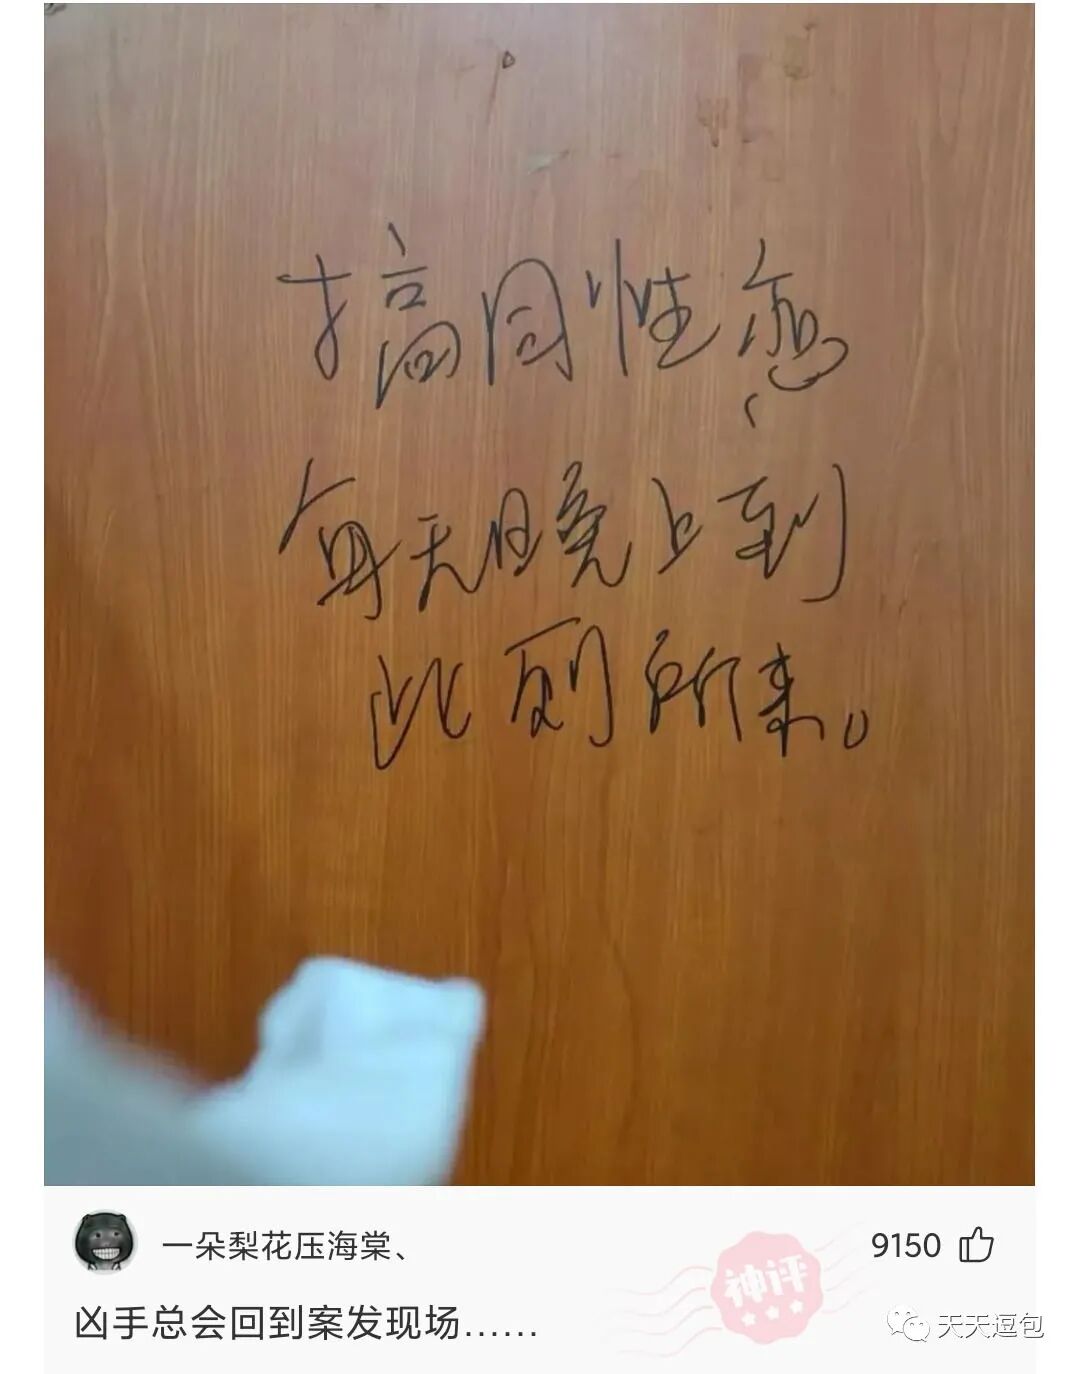 搞同性恋
每天晚上到
此厕所来。
一朵梨花压海棠、
9150
神评
凶手总会回到案发现场......
天天逗包